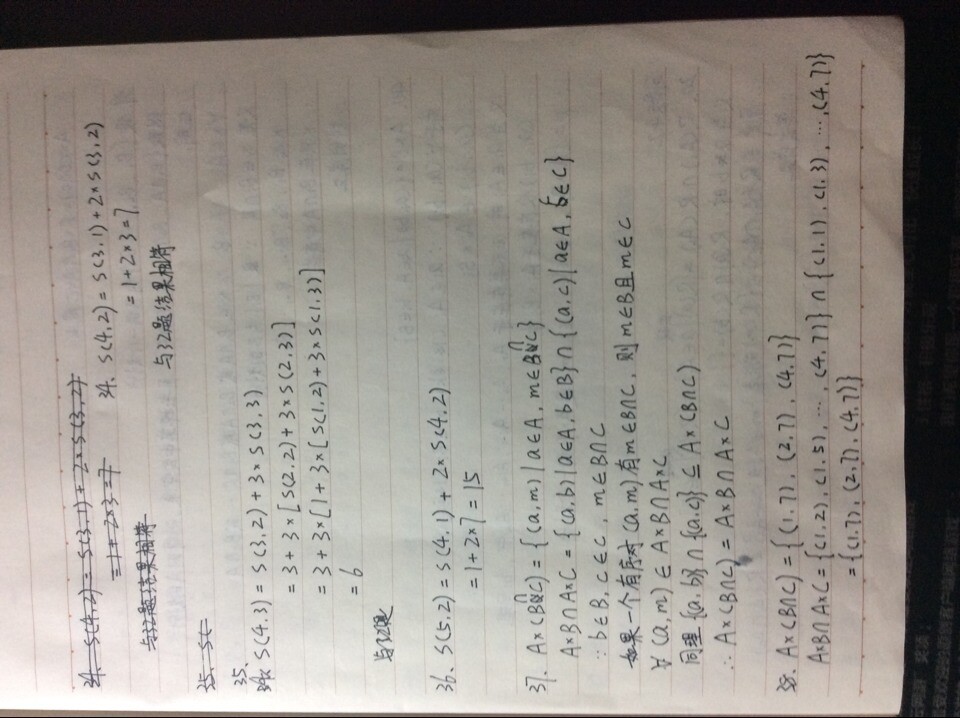 34. S(4,2) = S(3,1) + 2×S(3,2)
= 1+2×3=7
与32题结果相符
34. S(4,2) = S(3,1)+2×S(3,2)
= 1+2×3=7
与32题结果相符
35. S(
35.
S(4,3) = S(3,2) + 3×S(3,3)
= 3 + 3×[S(2,2)+3×S(2,3)]
= 3 + 3×[1+3×[S(1,2)+3×S(1,3)]
= 6
与32题
36. S(5,2) = S(4,1) + 2×S(4,2)
= 1+2×7 = 15
37. A×(B∩C) = {(a,m)|a∈A, m∈B∩C}
A×B∩A×C = {(a,b)|a∈A, b∈B}∩{(a,c)|a∈A, c∈C}
∵ b∈B, c∈C, m∈B∩C
如果一个有序对(a,m)有m∈B∩C, 则m∈B且m∈C
∀(a,m) ∈ A×B∩A×C
同理{(a,b)}∩{(a,c)} ⊆ A×(B∩C)
∴ A×(B∩C) = A×B∩A×C
38. A×(B∩C) = {(1,7), (2,7), (4,7)}
A×B∩A×C = {(1,2), (1,5), ⋯, (4,7)} ∩ {(1,1), (1,3), ⋯, (4,7)}
= {(1,7), (2,7), (4,7)}